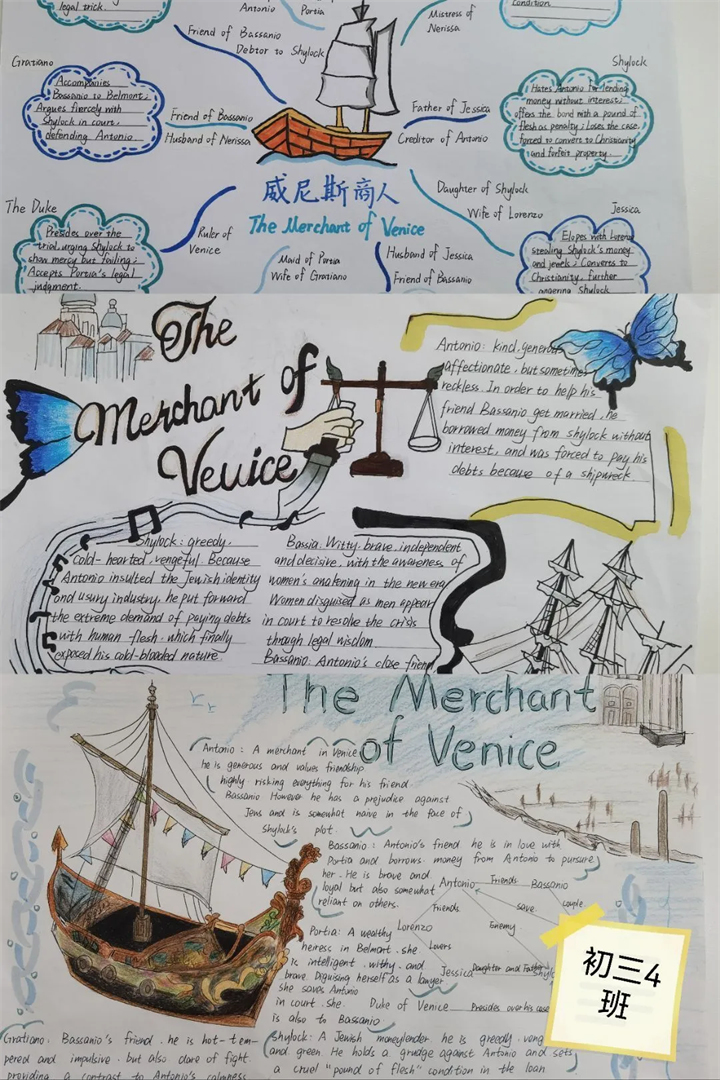 legal trick.
Antonio
Portia
Friend of Bassanio
Debtor to Shylock
Mistress of
Nerissa
condition.
Gratiano
Accompanies
Bassanio to Belmont;
Argues fiercely with
Shylock in court,
defending Antonio.
Friend of Bassanio
Husband of Nerissa
Father of Jessica
Creditor of Antonio
Shylock
Hates Antonio for lending
money without interest;
offers the bond with a pound of
flesh as penalty; Loses the case,
forced to convert to Christianity
and forfeit property.
威尼斯商人
The Merchant of Venice
The Duke
Presides over the
trial, urging Shylock to
show mercy but failing;
Accepts Portia's legal
judgment.
Ruler of
Venice
Maid of Portia
Wife of Gratiano
Husband of Jessica
Friend of Bassanio
Daughter of Shylock
Wife of Lorenzo
Jessica
Elopes with Lorenzo
stealing Shylock's money
and jewels; Converts to
Christianity, further
angering Shylock
The
Merchant of
Venice
Antonio: kind, generous
affectionate, but sometimes
reckless. In order to help his
friend Bassanio get married, he
borrowed money from shylock without
interest, and was forced to pay his
debts because of a shipwreck.
Shylock: greedy,
cold-hearted, vengeful. Because
Antonio insulted the Jewish identity
and usury industry, he put forward
the extreme demand of paying debts
with human flesh, which finally
exposed his cold-blooded nature
Bassia: Witty, brave, independent
and decisive, with the awareness of
women's awakening in the new era
Women disguised as men appear
in court to resolve the crisis
through legal wisdom
Bassanio: Antonio's close friend
The Merchant
of Venice
Antonio: A merchant in Venice
he is generous and values friendship
highly risking everything for his friend
Bassanio However he has a prejudice against
Jews and is somewhat naive in the face of
Shylock's plot.
Bassanio: Antonio's friend he is in love with
Portia and borrows money from Antonio to pursure
her. He is brave and
loyal but also somewhat
reliant on others.
Antonio
Friends
Bassanio
Friends
save
couple
Lorenzo
Enemy
Lovers
Jessica
Daughter and Father
Duke of Venice
Presides over his case
Portia: A wealthy
heiress in Belmart. she
is intelligent. withy. and
brave Disguising herself as a lawyer
she saves Antonio
in court. she
is also to Bassanio
Gratiano: Bassanio's friend. he is hot-tem-
pered and impulsive. but also dare of fight
providing a contrast to Antonio's calmness
Shylock: A Jewish moneylender he is greedy.
and green He holds a grudge against Antonio and sets
a cruel "pound of flesh" condition in the loan
初三4
班